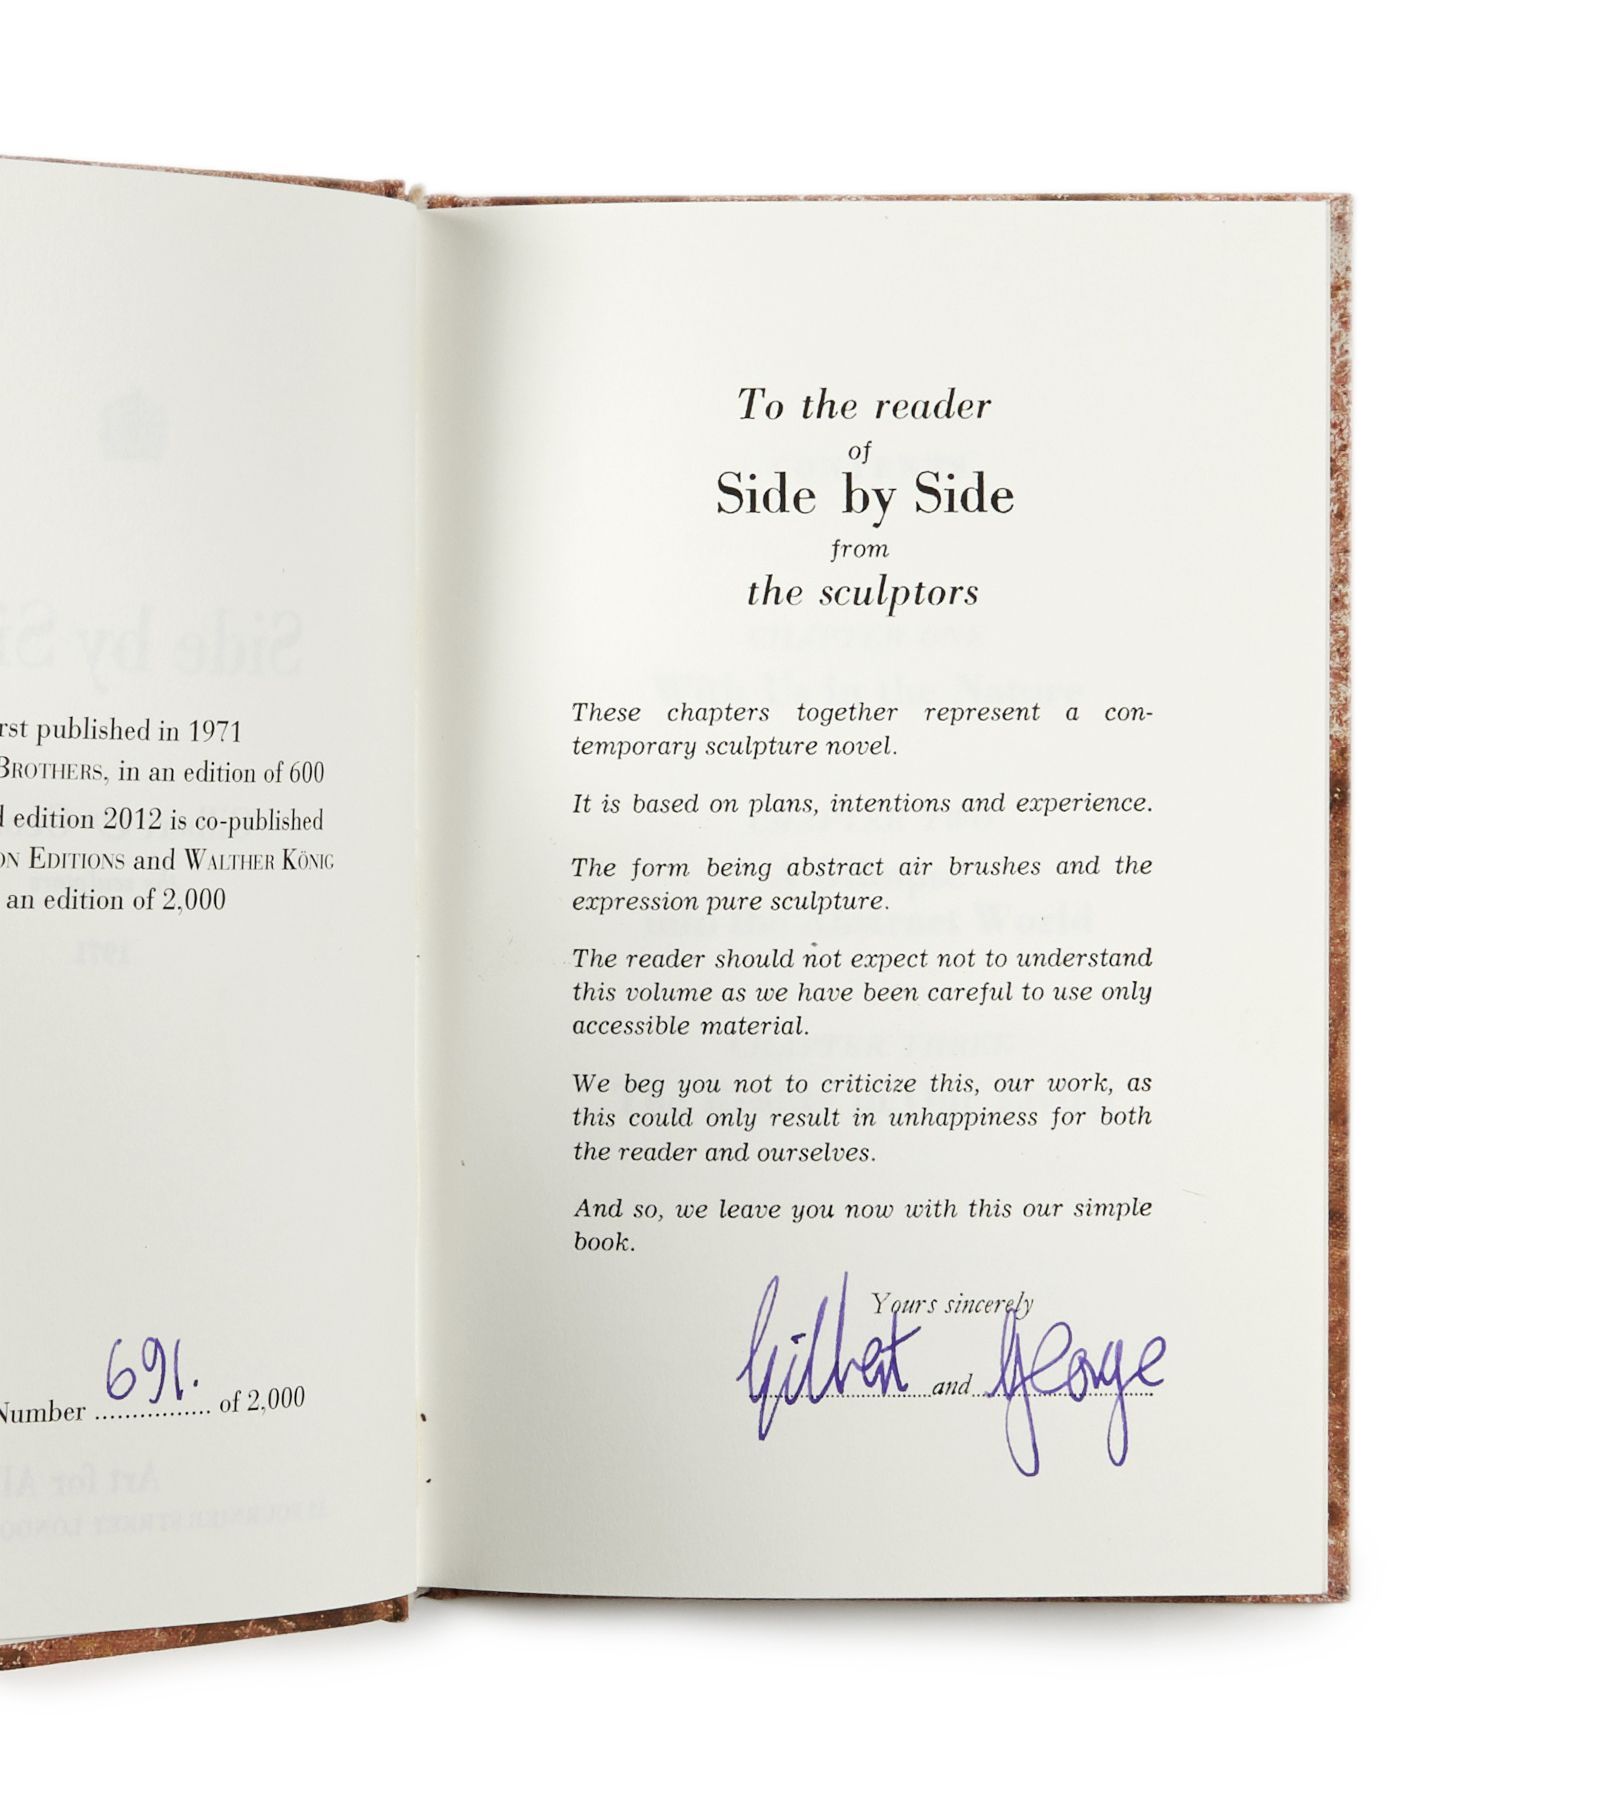 published in 1971
BROTHERS, in an edition of 600
edition 2012 is co-published
EDITIONS and WALTHER KÖNIG
an edition of 2,000
Number 691. of 2,000
To the reader
of
Side by Side
from
the sculptors
These chapters together represent a con-
temporary sculpture novel.
It is based on plans, intentions and experience.
The form being abstract air brushes and the
expression pure sculpture.
The reader should not expect not to understand
this volume as we have been careful to use only
accessible material.
We beg you not to criticize this, our work, as
this could only result in unhappiness for both
the reader and ourselves.
And so, we leave you now with this our simple
book.
Yours sincerely
Gilbert and George